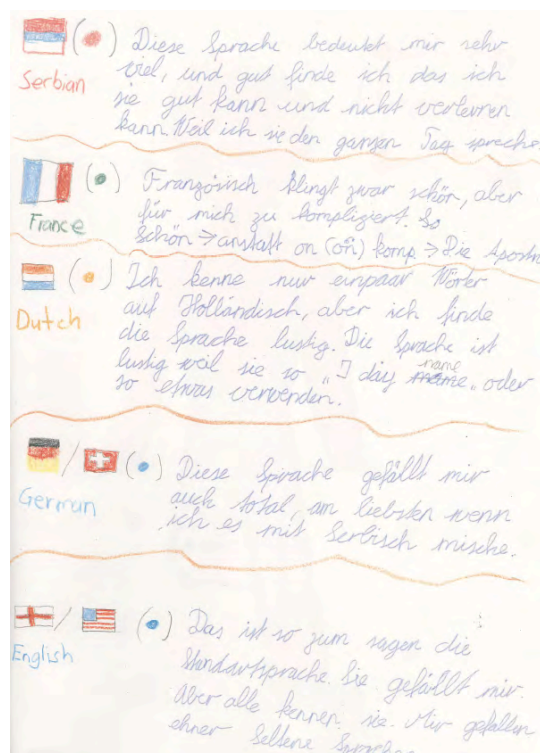 Serbian
Diese Sprache bedeutet mir sehr
viel, und gut finde ich das ich
sie gut kann und nicht verleren
kann. Weil ich sie den ganzen Tag spreche
France
Französisch klingt zwar schön, aber
für mich zu kompliziert. So
schön → anstatt on (oñ) komp → Die Apostr
Dutch
Ich kenne nur einpaar Wörter
auf Holländisch, aber ich finde
die Sprache lustig. Die Sprache ist
lustig weil sie so „I day name„ oder
so etwas verwenden.
German
Diese Sprache gefällt mir
auch total, am liebsten wenn
ich es mit Serbisch mische.
English
Das ist so zum sagen die
Standartsprache. Sie gefällt mir.
Aber alle kennen sie. Mir gefallen
eher seltene Sprachen